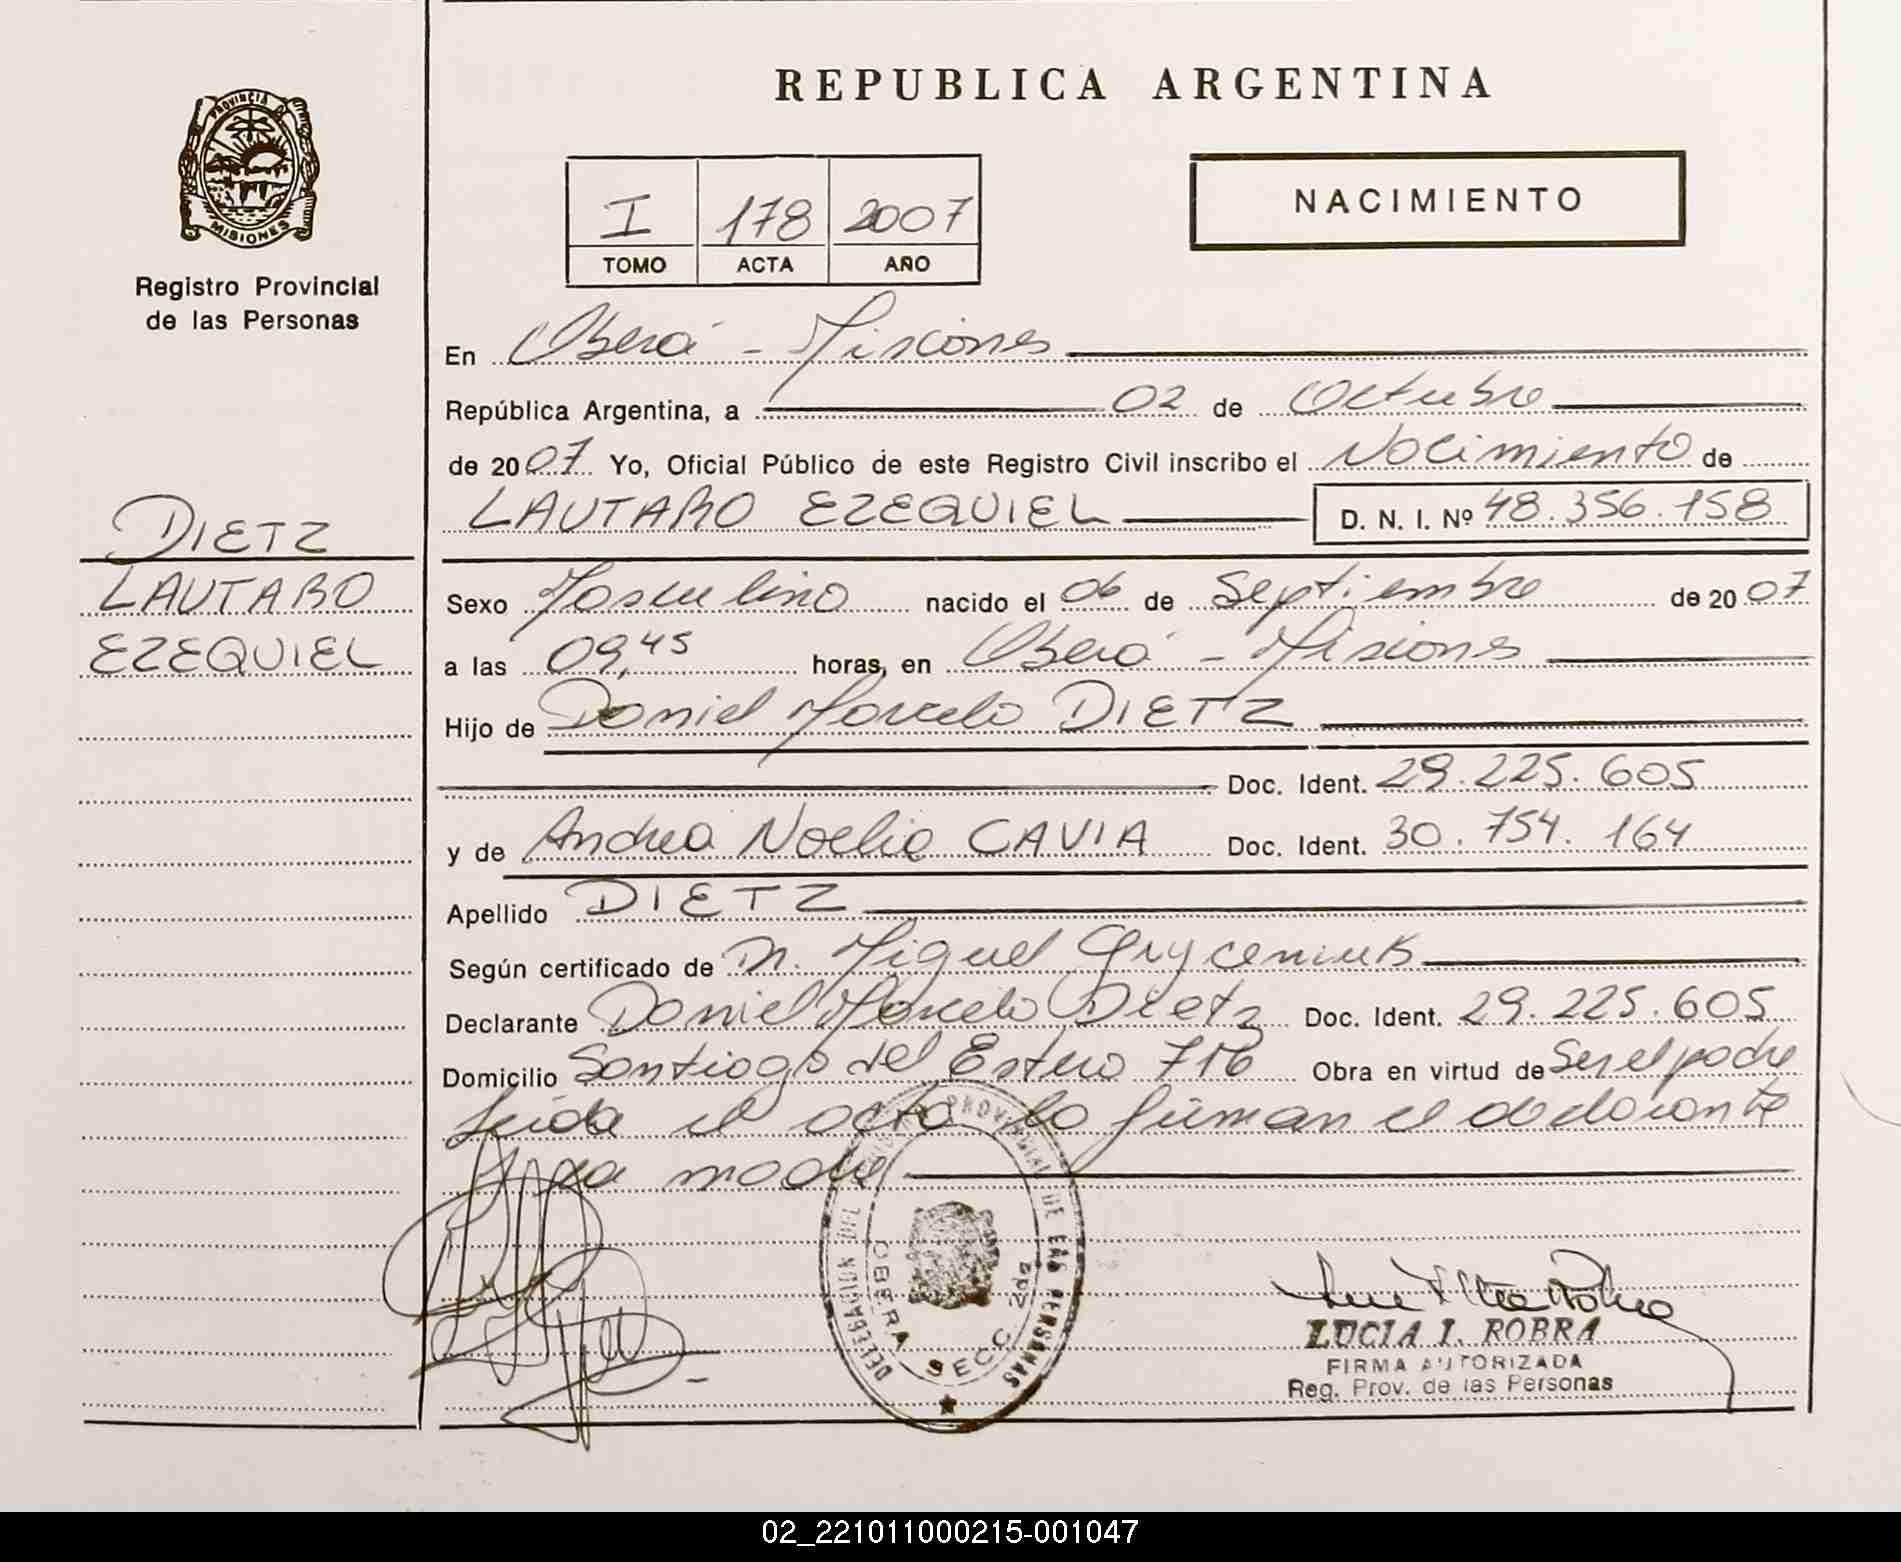 REPUBLICA ARGENTINA
PROVINCIA DE
MISIONES
Registro Provincial
de las Personas
I 178 2007
TOMO ACTA AÑO
NACIMIENTO
En Oberá - Misiones
República Argentina, a 02 de Octubre
de 2007 Yo, Oficial Público de este Registro Civil inscribo el Nacimiento de
LAUTARO EZEQUIEL D. N. I. Nº 48.356.158
DIETZ
LAUTARO
EZEQUIEL
Sexo Masculino nacido el 06 de Septiembre de 2007
a las 09,45 horas, en Oberá - Misiones
Hijo de Daniel Marcelo DIETZ
Doc. Ident. 29.225.605
y de Andrea Noelia CAVIA Doc. Ident. 30.754.164
Apellido DIETZ
Según certificado de Dr. Miguel
Declarante Daniel Marcelo Dietz Doc. Ident. 29.225.605
Domicilio Santiago del Estero 716 Obra en virtud de Ser el padre
Leida el acta lo firman el declarante
y la madre
DELEGACION DEL REGISTRO PROVINCIAL DE LAS PERSONAS
OBERA SECC. 2da
LUCIA I. ROBRA
FIRMA AUTORIZADA
Reg. Prov. de las Personas
02_221011000215-001047